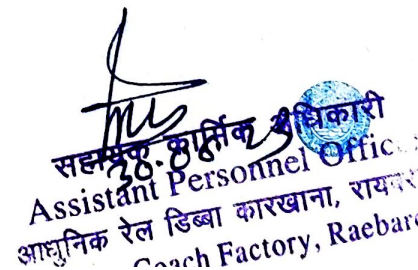 30.08.23
सहायक कार्मिक अधिकारी
Assistant Personnel Offic
आधुनिक रेल डिब्बा कारखाना, रायबर
Coach Factory, Raebare